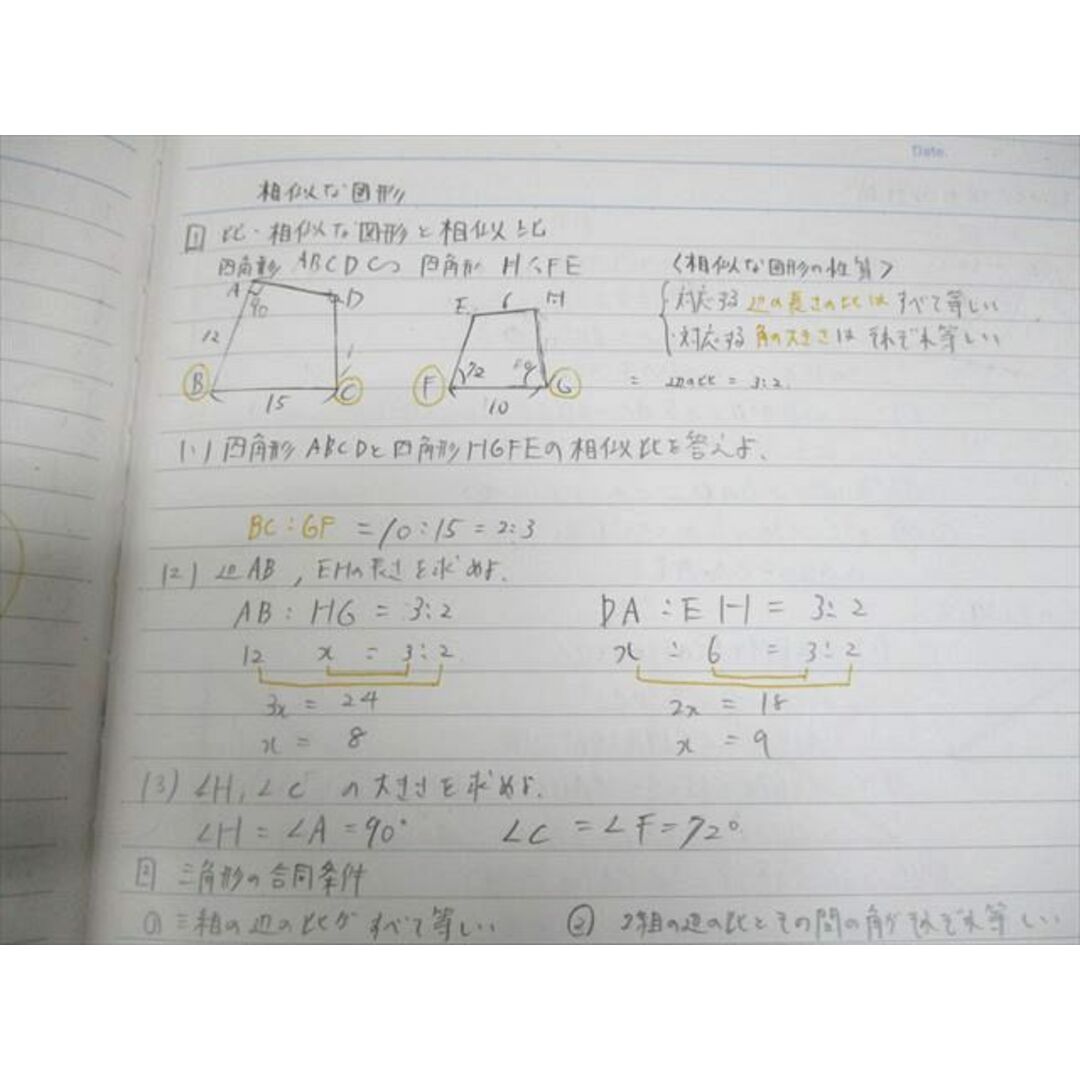 Date
相似な図形
1 比・相似な図形と相似比
四角形 ABCD∽ 四角形 HGFE
〈相似な図形の性質〉
・対応する辺の長さの比は すべて等しい
・対応する角の大きさは それぞれ等しい
= 辺の比 = 3:2
A 90 D
12
B 15 C
E 6 H
F 72 G
10
(1) 四角形ABCDと四角形HGFEの相似比を答えよ、
BC:GF = 10:15 = 2:3
(2) 辺AB, EHの長さを求めよ.
AB : HG = 3:2
12 x = 3:2
3x = 24
x = 8
DA : EH = 3:2
x : 6 = 3:2
2x = 18
x = 9
(3) ∠H, ∠C の大きさを求めよ.
∠H = ∠A = 90° ∠C = ∠F = 72°
2 三角形の合同条件
① 三組の辺の比が すべて等しい ② 2組の辺の比とその間の角が それぞれ等しい